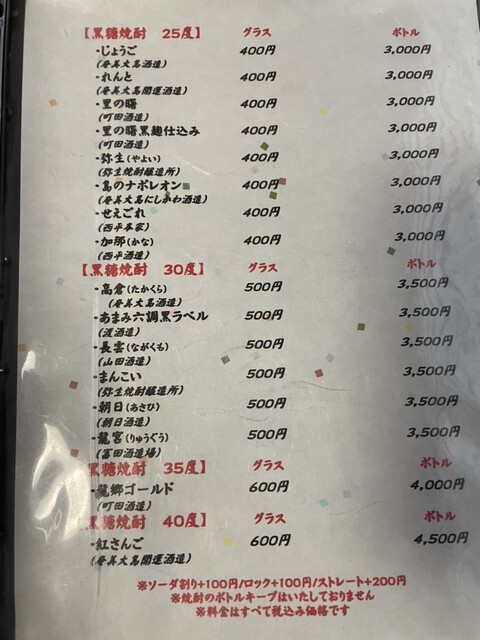 【黒糖焼酎 25度】 グラス ボトル
・じょうご 400円 3,000円
(奄美大島酒造)
・れんと 400円 3,000円
(奄美大島開運酒造)
・里の曙 400円 3,000円
(町田酒造)
・里の曙黒麹仕込み 400円 3,000円
(町田酒造)
・弥生(やよい) 400円 3,000円
(弥生焼酎醸造所)
・島のナポレオン 400円 3,000円
(奄美大島にしかわ酒造)
・せえごれ 400円 3,000円
(西平本家)
・加那(かな) 400円 3,000円
(西平酒造)
【黒糖焼酎 30度】 グラス ボトル
・高倉(たかくら) 500円 3,500円
(奄美大島酒造)
・あまみ六調黒ラベル 500円 3,500円
(渡酒造)
・長雲(ながくも) 500円 3,500円
(山田酒造)
・まんこい 500円 3,500円
(弥生焼酎醸造所)
・朝日(あさひ) 500円 3,500円
(朝日酒造)
・龍宮(りゅうぐう) 500円 3,500円
(冨田酒造場)
黒糖焼酎 35度】 グラス ボトル
・龍郷ゴールド 600円 4,000円
(町田酒造)
【黒糖焼酎 40度】 グラス ボトル
・紅さんご 600円 4,500円
(奄美大島開運酒造)
※ソーダ割り+100円/ロック+100円/ストレート+200円
※焼酎のボトルキープはいたしておりません
※料金はすべて税込み価格です